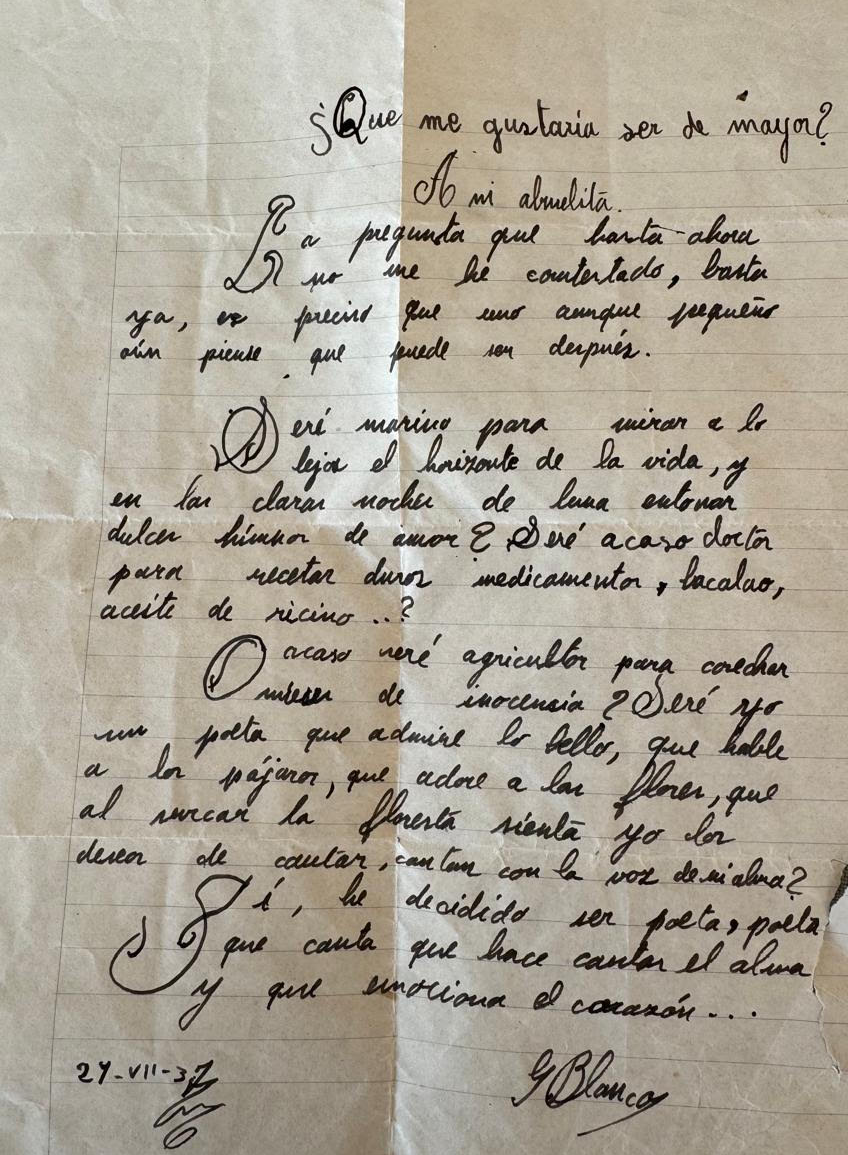 ¿Que me gustaria ser de mayor?
A mi abuelita.
La pregunta que hasta ahora
no me he contestado, basta
ya, es preciso que uno aunque pequeño
aún piense que puede ser después.
Seré marino para mirar a lo
lejos el horizonte de la vida, y
en las claras noches de luna entonar
dulces himnos de amor? Seré acaso doctor
para recetar duros medicamentos, bacalao,
aceite de ricino..?
O acaso seré agricultor para cosechar
mieses de inocensia? Seré yo
un poeta que admire lo bello, que hable
a los pájaros, que adore a las flores, que
al surcar la floresta sienta yo los
deseos de cantar, cantar con la voz de mi alma?
Sí, he decidido ser poeta, poeta
que canta que hace cantar el alma
y que emociona el corazón...
24-VII-37
G Blanco